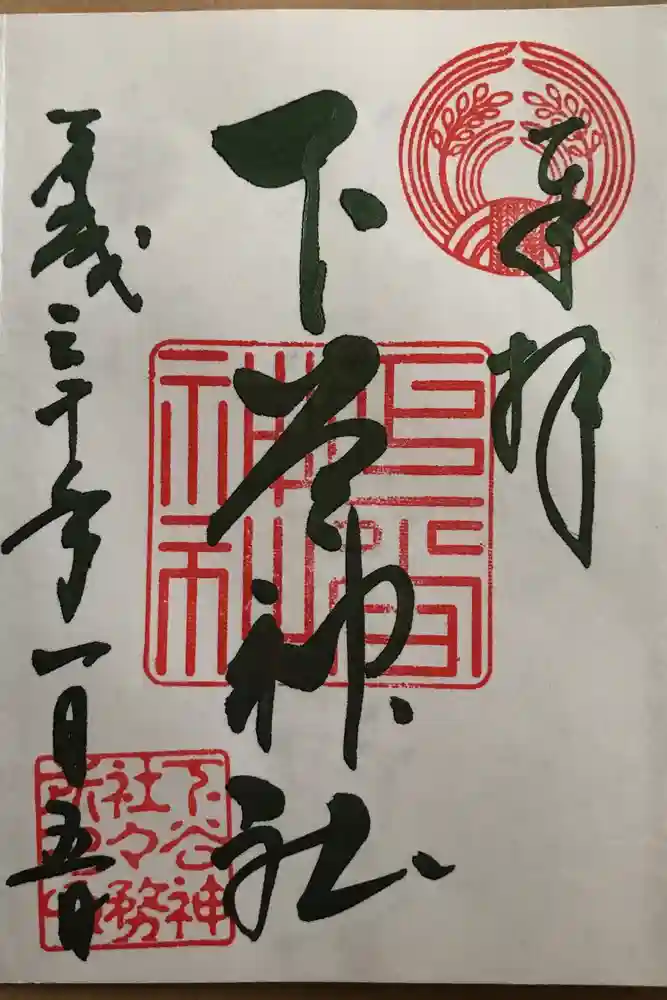 奉拝
下谷神社
平成三十年一月五日
下谷神社
下谷神
社々務
所